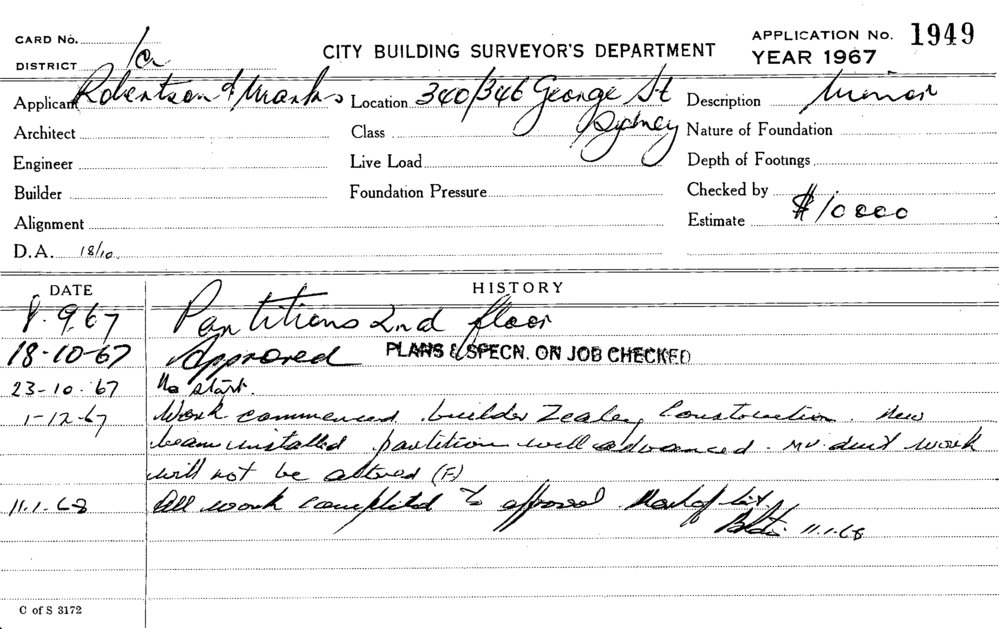 CARD No.
DISTRICT
CITY BUILDING SURVEYOR'S DEPARTMENT
APPLICATION No. 1949
YEAR 1967
Applicant Robertson & Marks Location 340/346 George St Sydney Description Minor
Architect Class Nature of Foundation
Engineer Live Load Depth of Footings
Builder Foundation Pressure Checked by
Alignment Estimate $10000
D.A. 18/10
DATE HISTORY
8.9.67 Partitions 2nd floor
18-10-67 Approved PLANS & SPECN. ON JOB CHECKED
23-10-67 No start.
1-12-67 Work commenced builder Zealey Construction. New
beam installed partition well advanced. MV. duct work
will not be altered (F)
11.1.68 All work completed to approval
11.1.68
C of S 3172